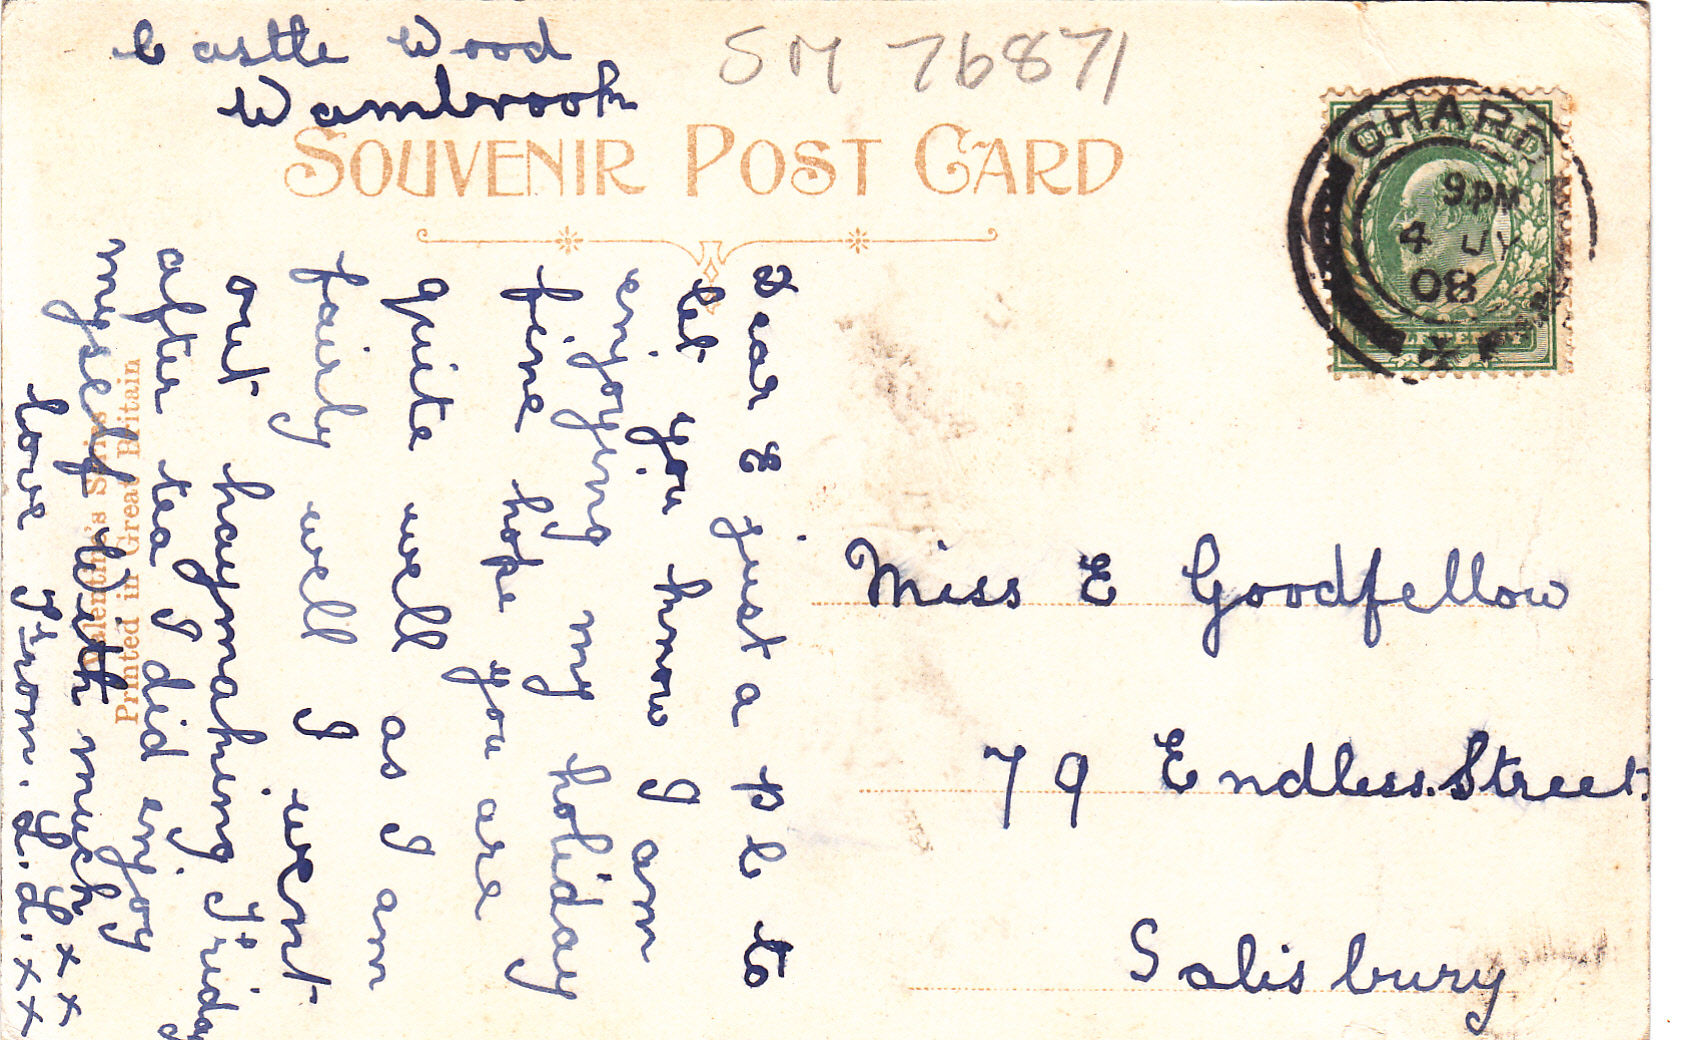 Castle Wood
Wambrook
SM 76871
SOUVENIR POST CARD
CHARD
9PM
4 JY
08
Dear E just a p c to
let you know I am
enjoying my holiday
fine hope you are
quite well as I am
fairly well I went
out haymaking Friday
after tea I did enjoy
myself With much
love From.
Valentine's Series
Printed in Great Britain
Miss E Goodfellow
79 Endless Street.
Salisbury